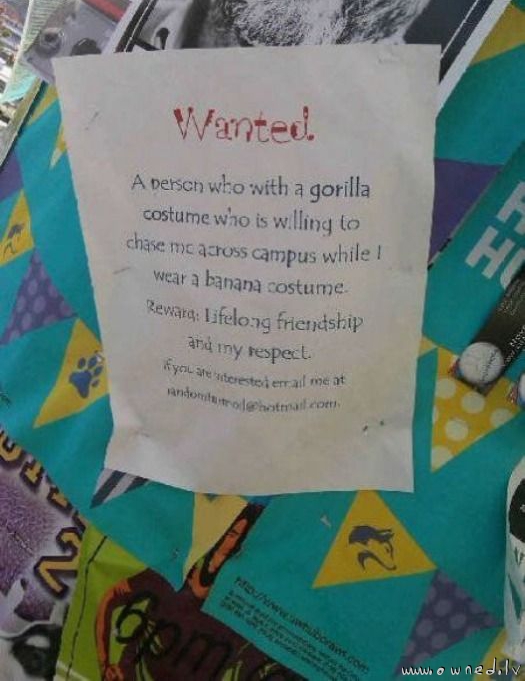 Wanted
A person who with a gorilla
costume who is willing to
chase me across campus while I
wear a banana costume.
Reward: Lifelong friendship
and my respect.
If you are interested email me at
6pm
www.owned.lv